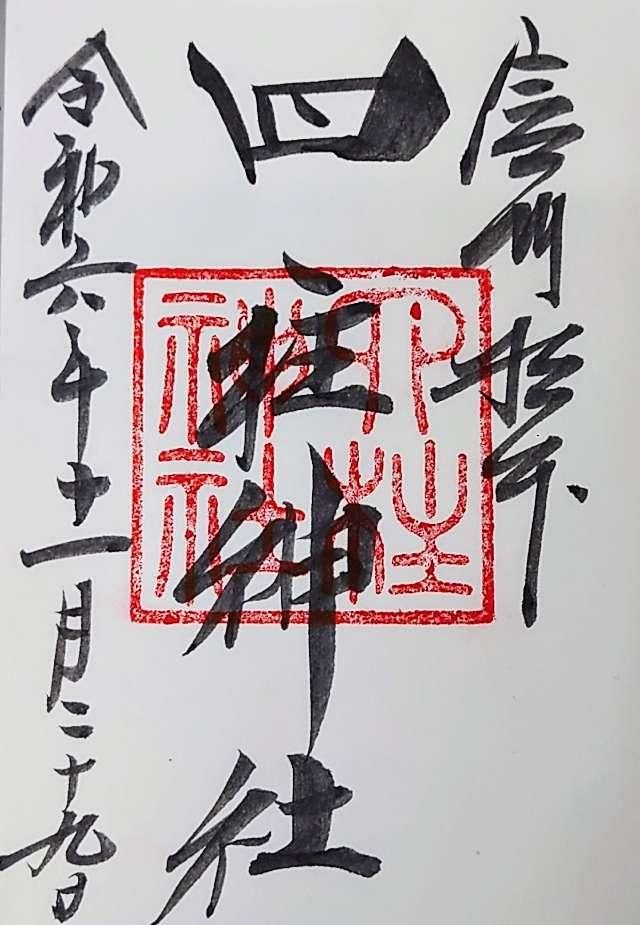 信州松本
四柱神社
四柱神社
令和六年十一月二十九日